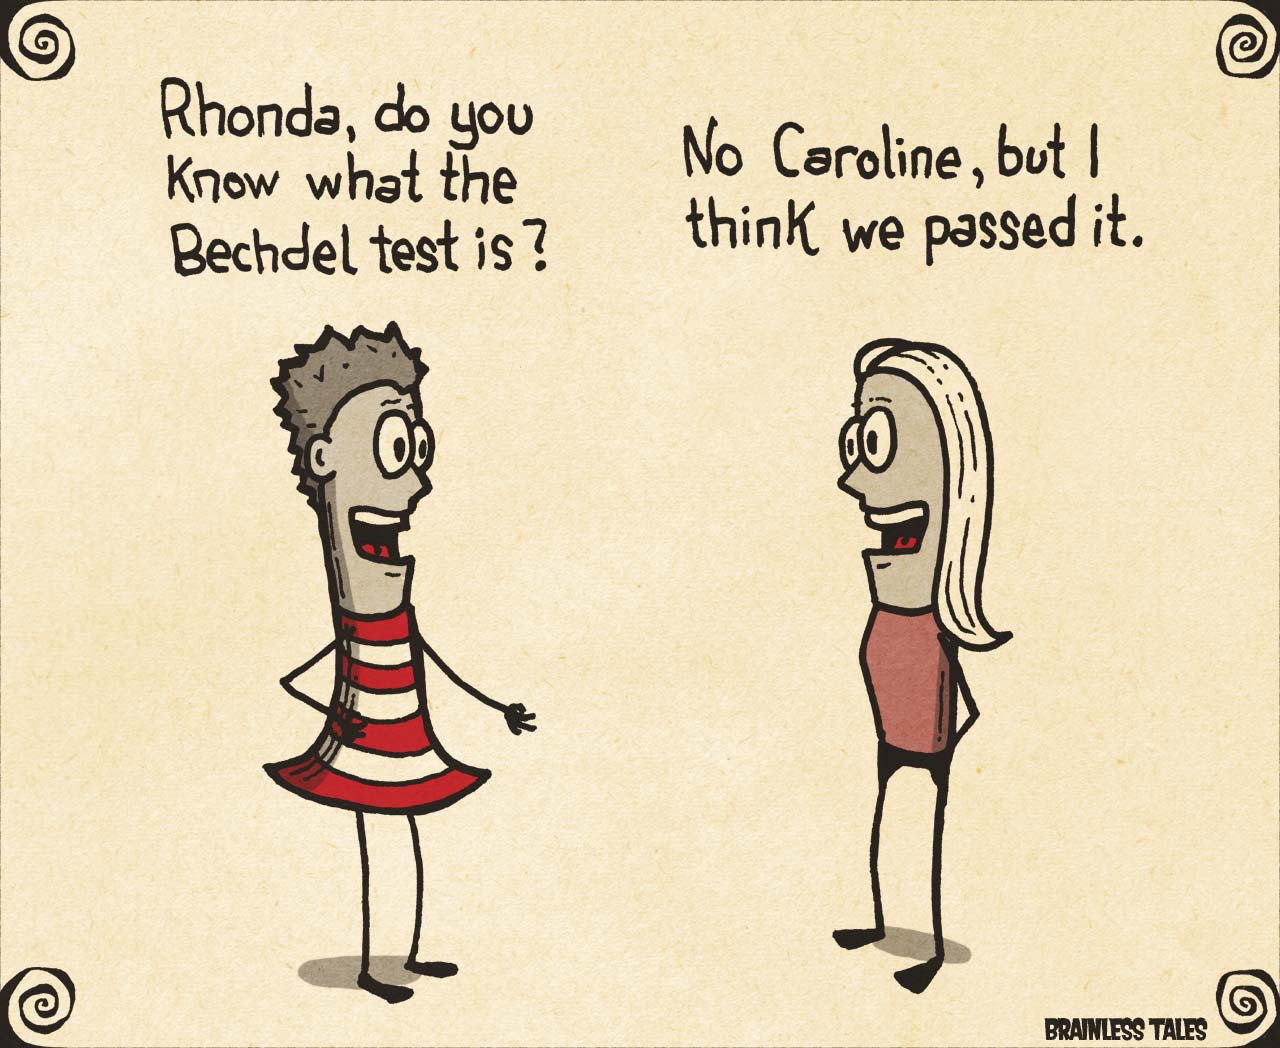 Rhonda, do you
know what the
Bechdel test is?
No Caroline, but I
think we passed it.
BRAINLESS TALES